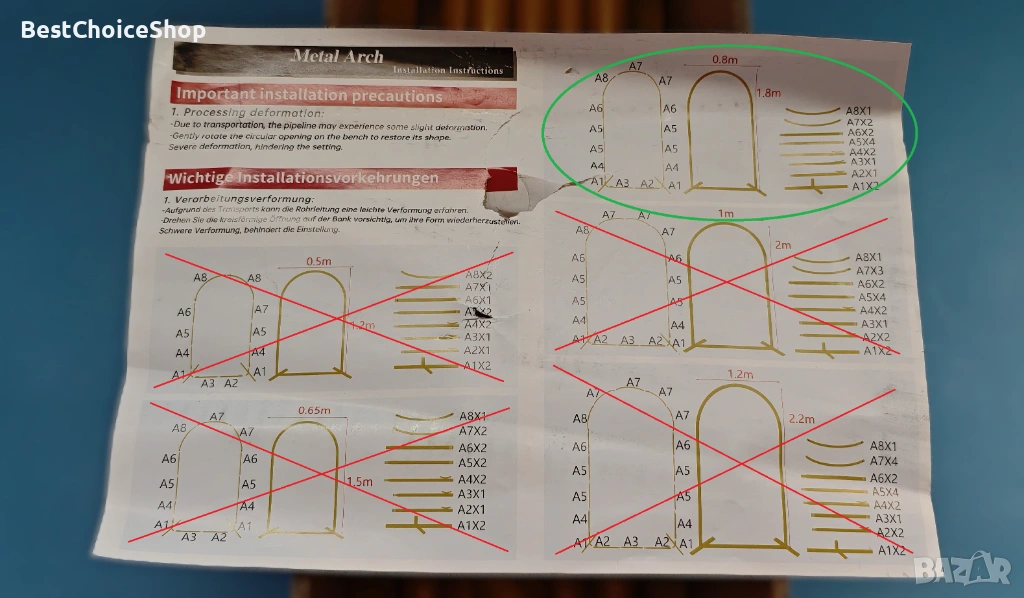 BestChoiceShop
Metal Arch
Installation Instructions
Important installation precautions
1. Processing deformation:
-Due to transportation, the pipeline may experience some slight deformation.
-Gently rotate the circular opening on the bench to restore its shape.
Severe deformation, hindering the setting.
Wichtige Installationsvorkehrungen
1. Verarbeitungsverformung:
-Aufgrund des Transports kann die Rohrleitung eine leichte Verformung erfahren.
-Drehen Sie die kreisförmige Öffnung auf der Bank vorsichtig, um ihre Form wiederherzustellen.
Schwere Verformung, behindert die Einstellung.
0.5m
A8 A8
A6 A7
A5 A5
A4 A4
A1 A3 A2 A1
1.2m
A8X2
A7X1
A6X1
A5X2
A4X2
A3X1
A2X1
A1X2
0.65m
A7
A8 A7
A6 A6
A5 A5
A4 A4
A1 A3 A2 A1
1.5m
A8X1
A7X2
A6X2
A5X2
A4X2
A3X1
A2X1
A1X2
0.8m
A7
A8 A7
A6 A6
A5 A5
A5 A5
A4 A4
A1 A3 A2 A1
1.8m
A8X1
A7X2
A6X2
A5X4
A4X2
A3X1
A2X1
A1X2
1m
A7 A7
A8 A7
A6 A6
A5 A5
A5 A5
A4 A4
A1 A2 A3 A2 A1
2m
A8X1
A7X3
A6X2
A5X4
A4X2
A3X1
A2X2
A1X2
1.2m
A7
A7 A7
A8 A7
A6 A6
A5 A5
A5 A5
A4 A4
A1 A2 A3 A2 A1
2.2m
A8X1
A7X4
A6X2
A5X4
A4X2
A3X1
A2X2
A1X2
BAZAR